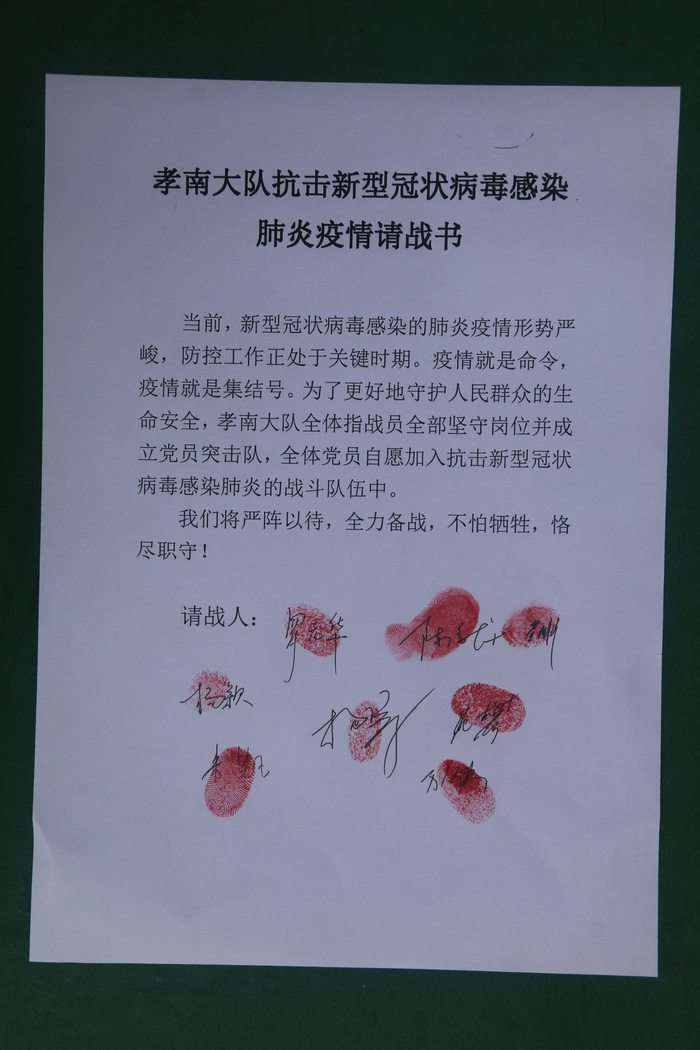 孝南大队抗击新型冠状病毒感染
肺炎疫情请战书
当前，新型冠状病毒感染的肺炎疫情形势严
峻，防控工作正处于关键时期。疫情就是命令，
疫情就是集结号。为了更好地守护人民群众的生
命安全，孝南大队全体指战员全部坚守岗位并成
立党员突击队，全体党员自愿加入抗击新型冠状
病毒感染肺炎的战斗队伍中。
我们将严阵以待，全力备战，不怕牺牲，恪
尽职守！
请战人：
杨颖